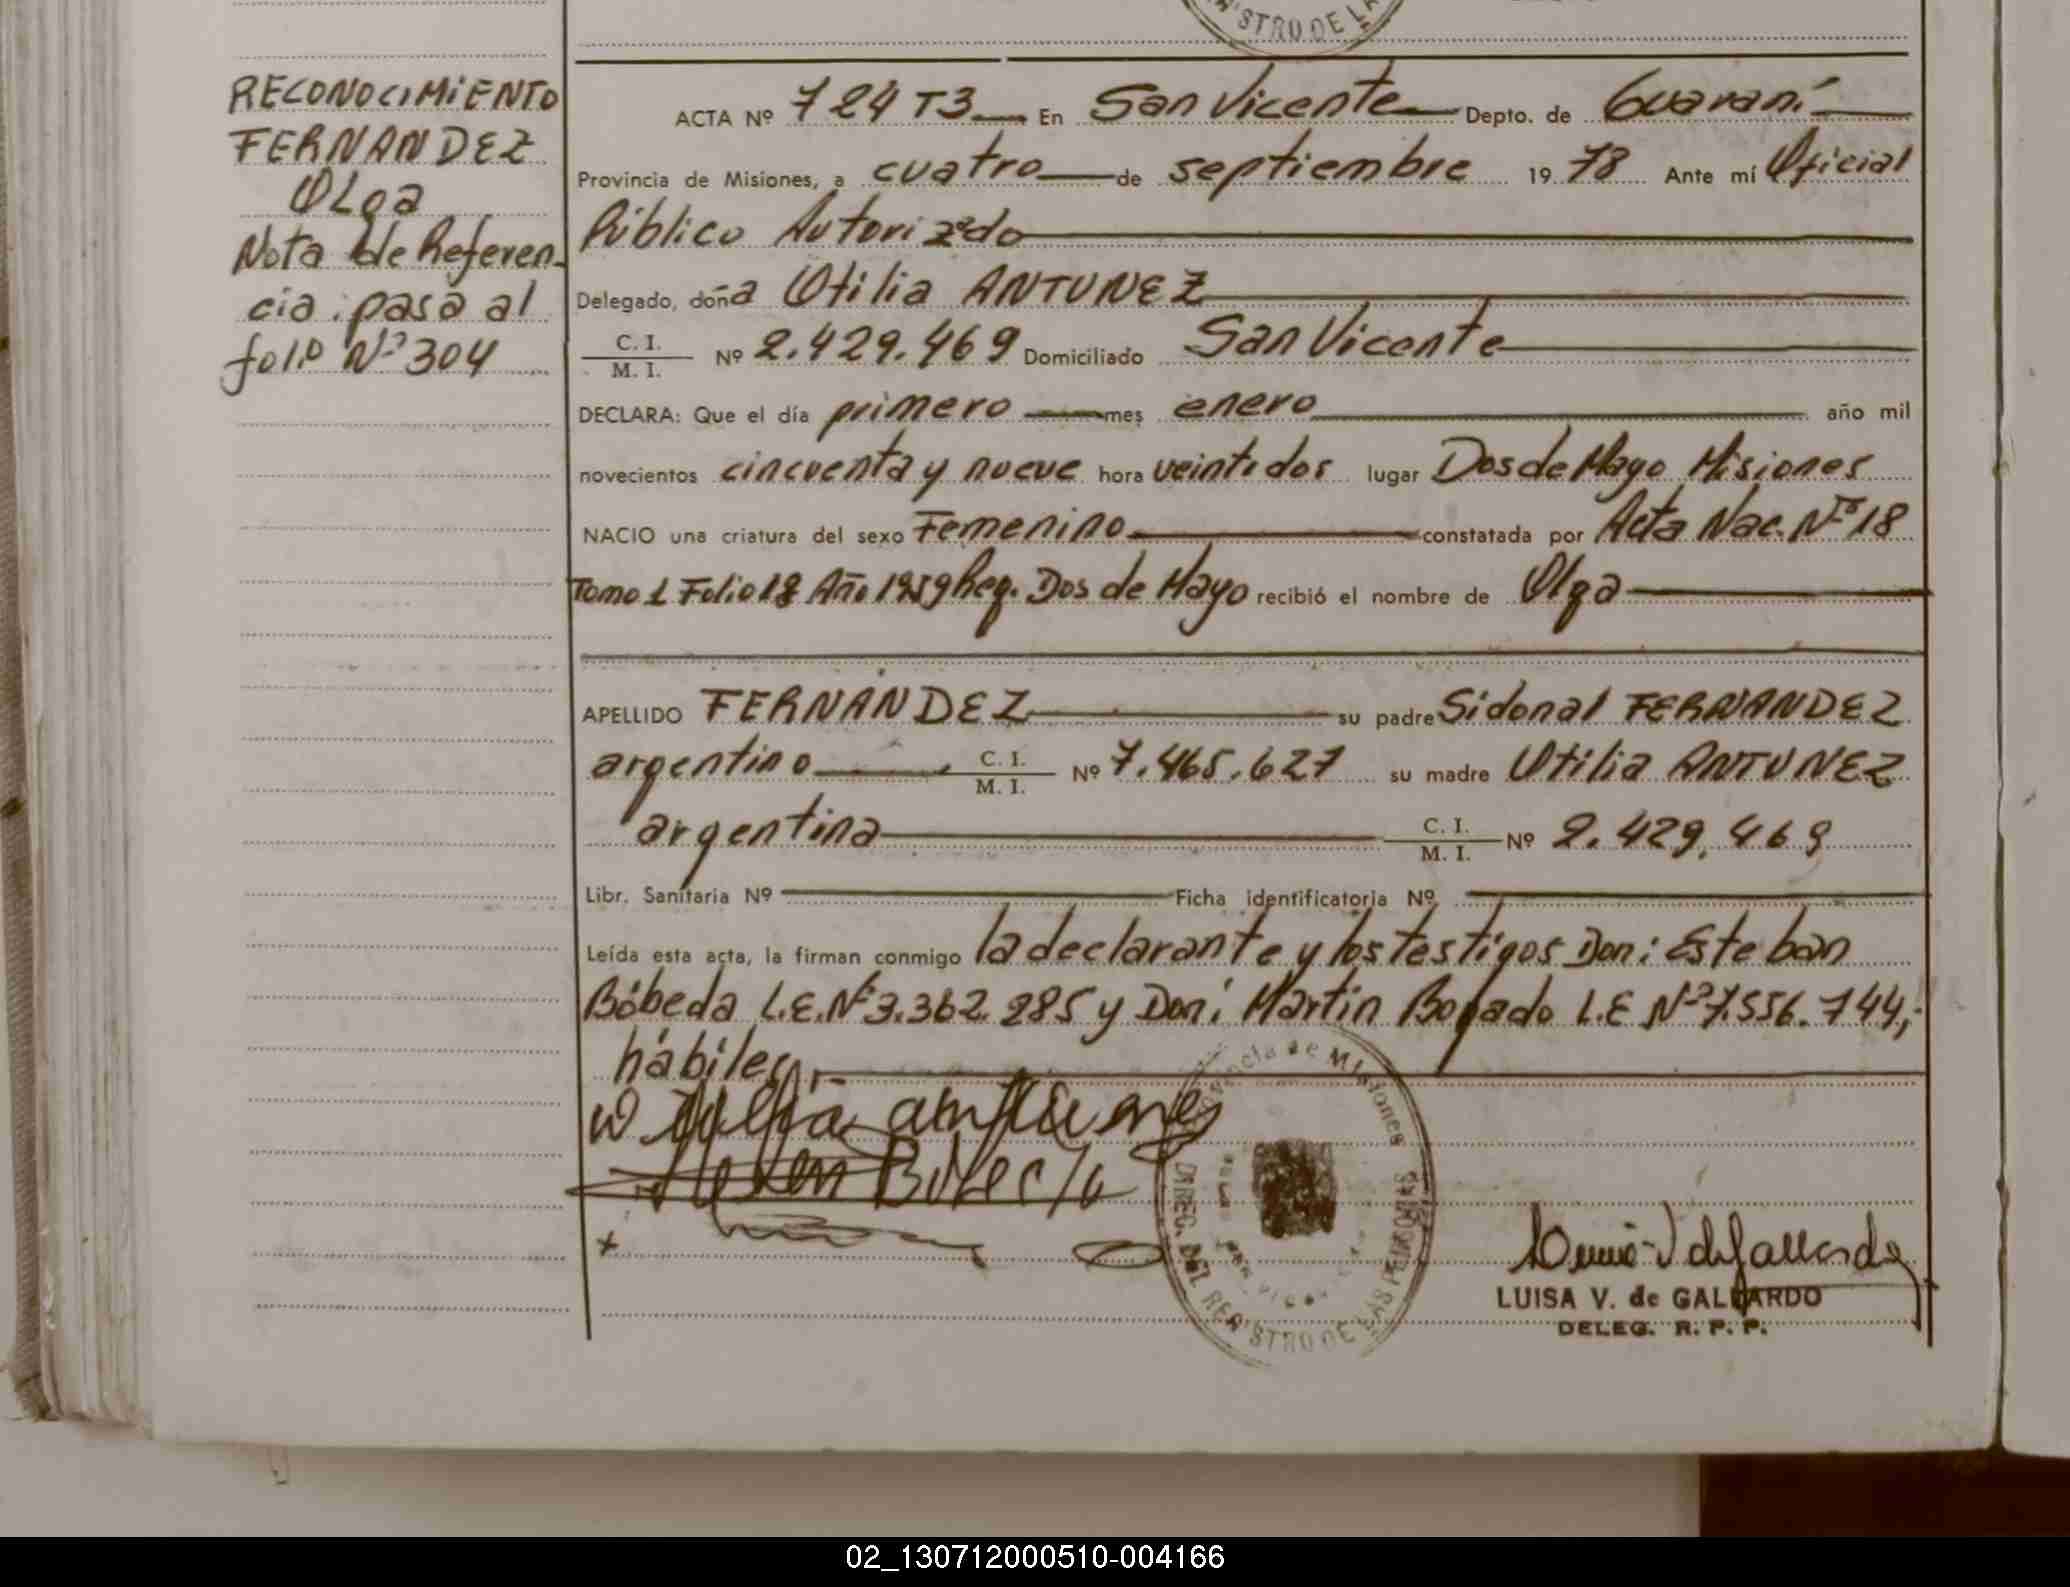 STRO DE LA
RECONOCIMIENTO
FERNANDEZ
OLga
Nota de Referen-
cia: pasa al
folio Nº 304
ACTA Nº 724 T3 En San Vicente Depto. de Guaraní
Provincia de Misiones, a cuatro de septiembre 19 78 Ante mí Oficial
Público Autorizado
Delegado, doña Otilia ANTUNEZ
C. I.
M. I. Nº 2.429.469 Domiciliado San Vicente
DECLARA: Que el día primero mes enero año mil
novecientos cincuenta y nueve hora veintidos lugar Dos de Mayo Misiones
NACIO una criatura del sexo Femenino constatada por Acta Nac. Nº 18
Tomo 1 Folio 18 Año 1959 Reg. Dos de Mayo recibió el nombre de Olga
APELLIDO FERNÁNDEZ su padre Sidonal FERNANDEZ
argentino C. I. M. I. Nº 7.465.627 su madre Otilia ANTUNEZ
argentina C. I. M. I. Nº 2.429.469
Libr. Sanitaria Nº Ficha identificatoria Nº
Leída esta acta, la firman conmigo la declarante y los testigos Don: Esteban
Bóbeda L.E. Nº 3.362.285 y Don: Martín Bogado L.E Nº 7.556.744,-
hábiles,-
Provincia de Misiones
DIREC. DEL REGISTRO DE LAS PERSONAS
LUISA V. de GALLARDO
DELEG. R. P. P.
02_130712000510-004166